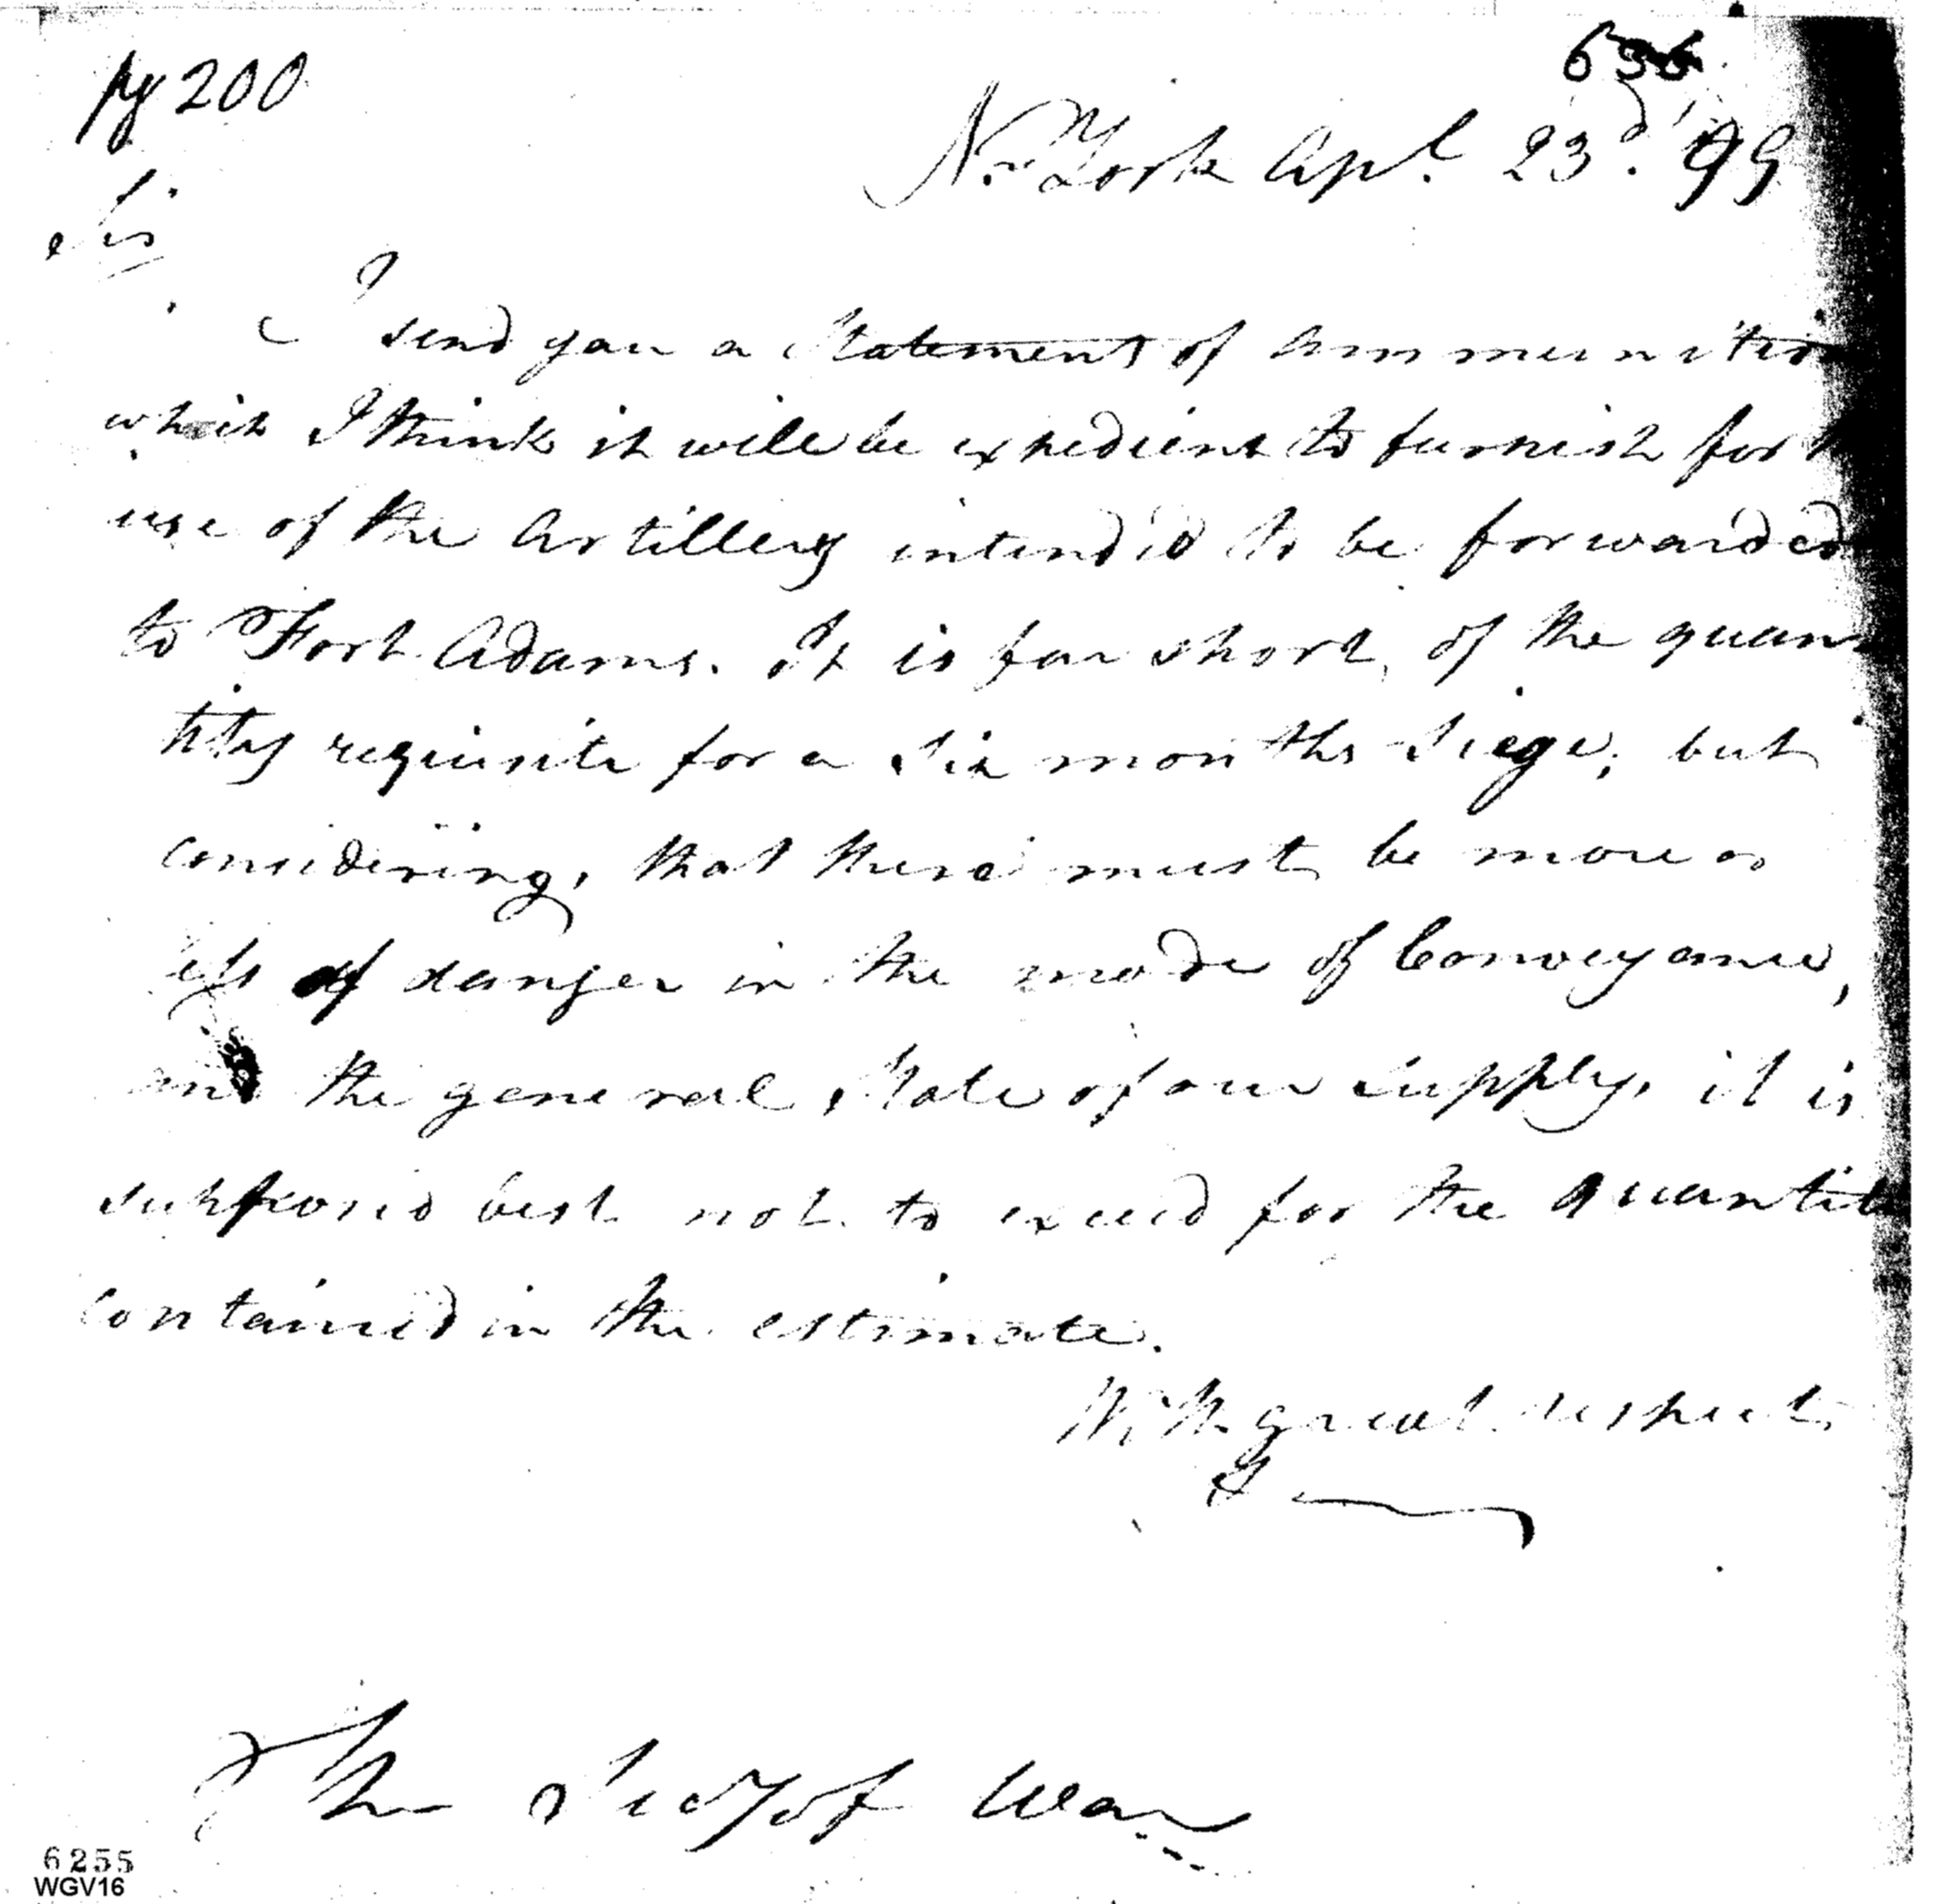 pg 200
636
N. York Apl. 23d. 99
Sir
I send you a Statement of Ammunition
which I think it will be expedient to furnish for
use of the Artillery intend'd to be forwarded
to Fort Adams. It is far short, of the quan
tity requisite for a Six months Siege; but
considering, that there must be more or
less of danger in the mode of Conveyance,
and the general State of our supply, it is
supposed best not to exceed for the quantity
contained in the estimate.
With great respect
The Secy of War
6255
WGV16